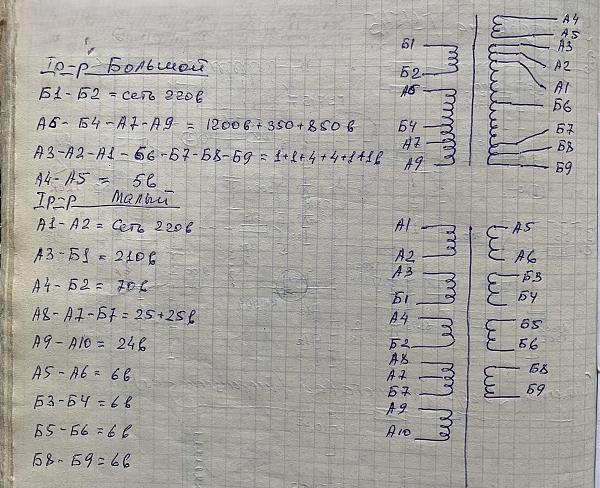 Тр-р Большой
Б1-Б2 = сеть 220в
А6-Б4-А7-А9 = 1200в+350+850в
А3-А2-А1-Б6-Б7-Б8-Б9 = 1+1+4+4+1+1в
А4-А5 = 5в
Тр-р Малый
А1-А2 = Сеть 220в
А3-Б1 = 210в
А4-Б2 = 70в
А8-А7-Б7 = 25+25в
А9-А10 = 24в
А5-А6 = 6в
Б3-Б4 = 6в
Б5-Б6 = 6в
Б8-Б9 = 6в
Б1
Б2
А6
Б4
А7
А9
А4
А5
А3
А2
А1
Б6
Б7
Б8
Б9
А1
А2
А3
Б1
А4
Б2
А8
А7
Б7
А9
А10
А5
А6
Б3
Б4
Б5
Б6
Б8
Б9